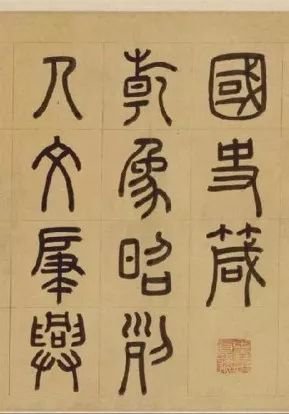 國史箴
乾象昭列
人文肇興